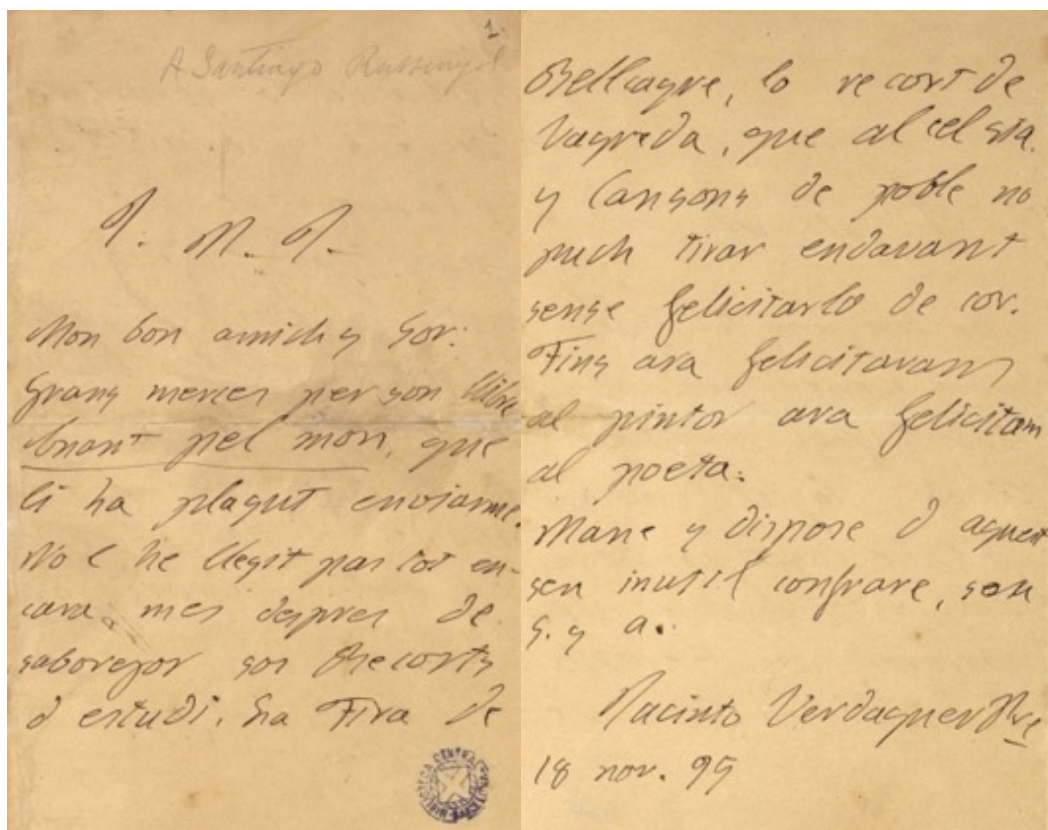 1
A Santiago Russinyol
J. M. J.
Mon bon amich y Sor:
Grans merces per son llibre
Anant pel mon, que
li ha plagut enviarme.
No l he llegit pas tot en-
cara, mes despres de
saborejar sos Recorts
d estudi, La Fira de
Bellcayre, lo recort de
Vayreda, que al cel sia.
y Cansons de poble no
puch tirar endavant
sense felicitarlo de cor.
Fins ara felicitavam
al pintor ara felicitam
al poeta.
Mane y dispose d aquest
seu inutil confrare, seu
s. y a.
Jacinto Verdaguer Pre
18 nov. 95